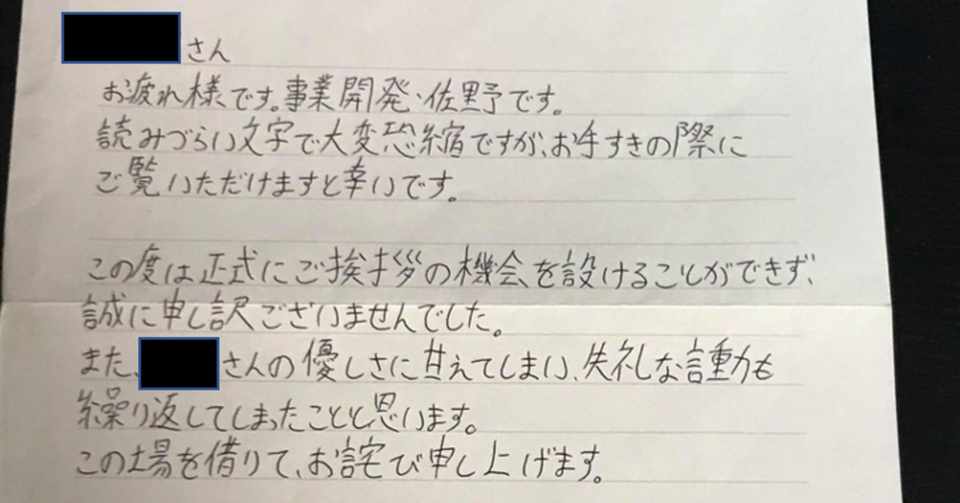 さん
お疲れ様です。事業開発・佐野です。
読みづらい文字で大変恐縮ですが、お手すきの際に
ご覧いただけますと幸いです。
この度は正式にご挨拶の機会を設けることができず、
誠に申し訳ございませんでした。
また、さんの優しさに甘えてしまい、失礼な言動も
繰り返してしまったことと思います。
この場を借りて、お詫び申し上げます。